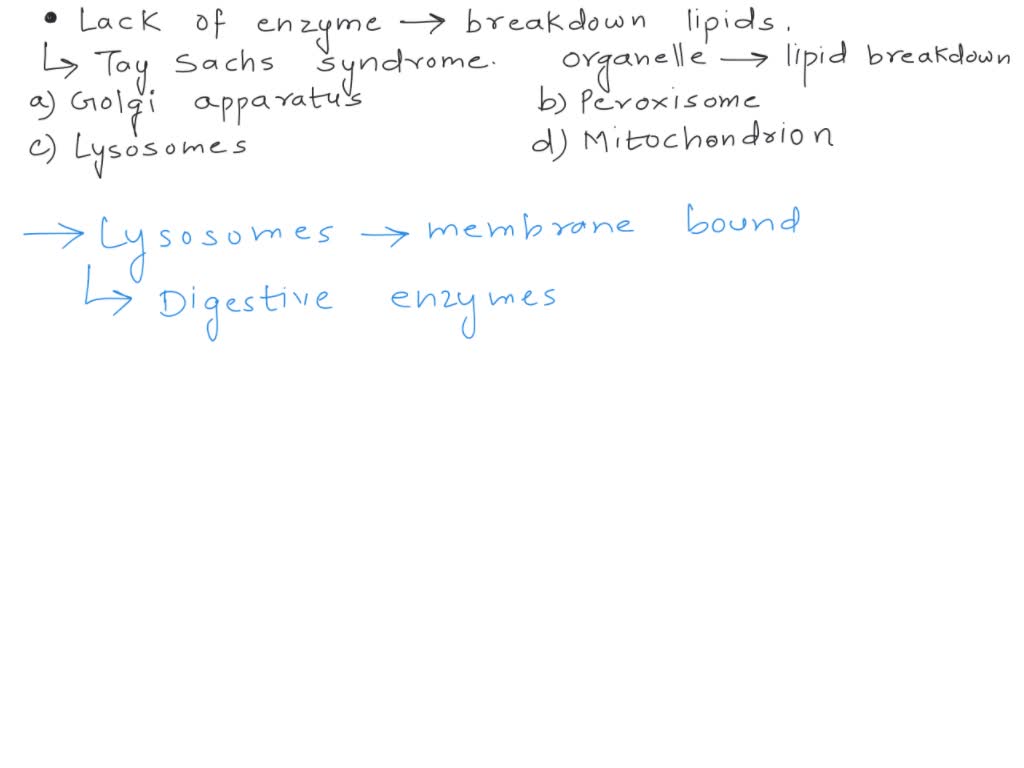 • Lack of enzyme → breakdown lipids.
↳ Tay Sachs syndrome. organelle → lipid breakdown
a) Golgi apparatus b) Peroxisome
c) Lysosomes d) Mitochondrion
→ Lysosomes → membrane bound
↳ Digestive enzymes